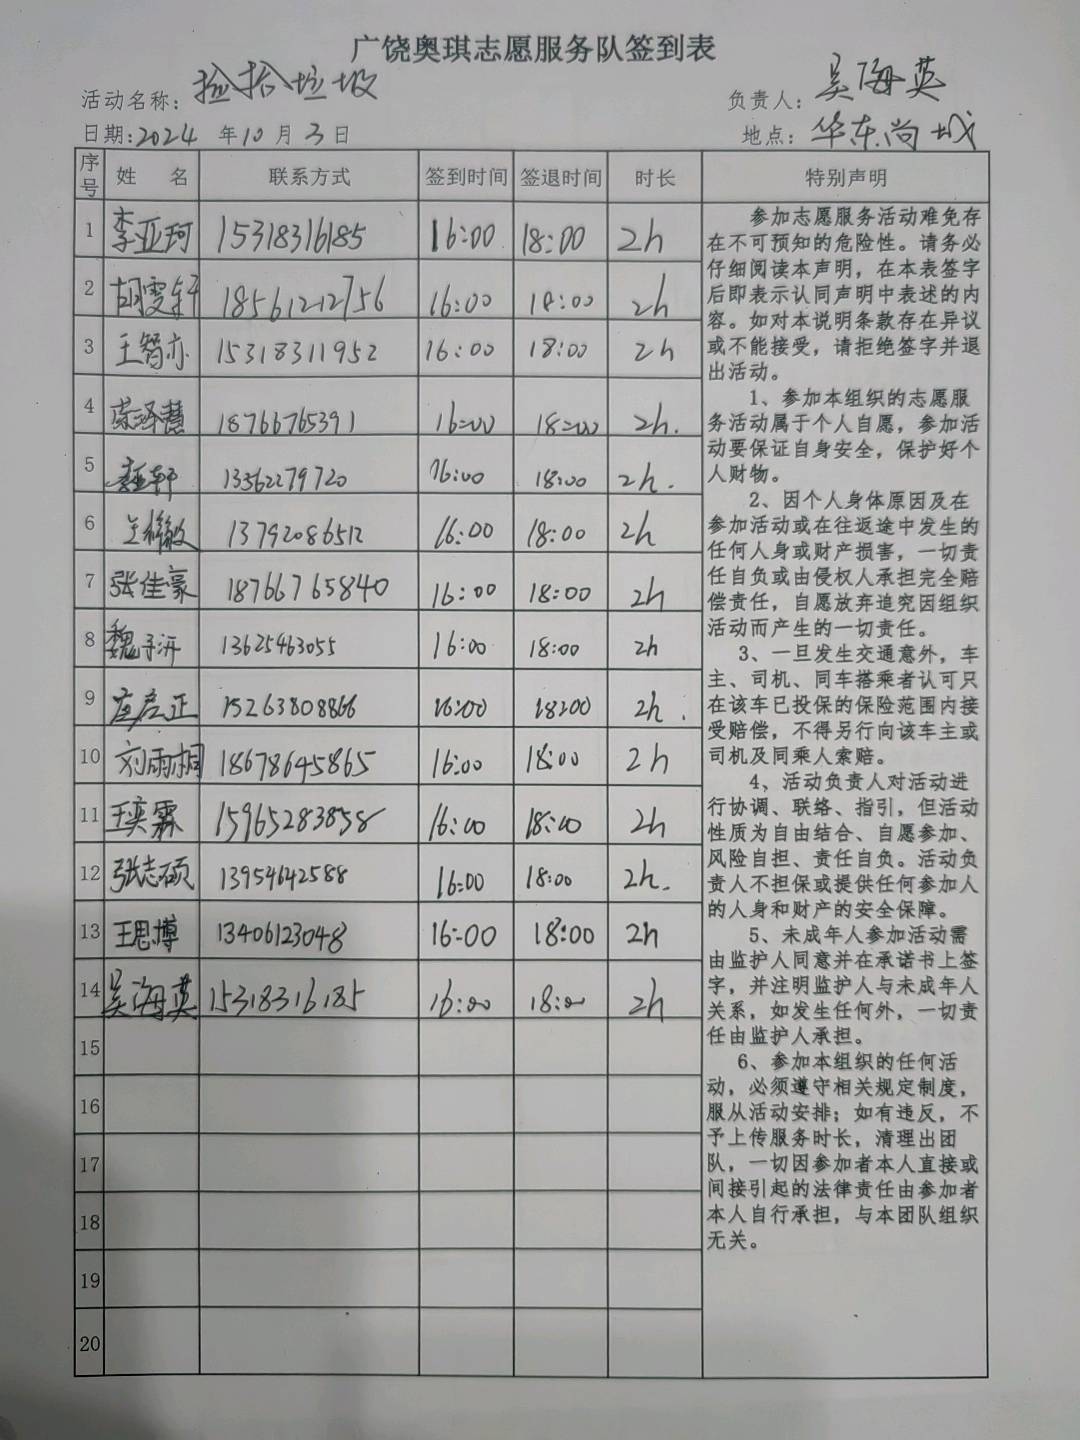 广饶奥琪志愿服务队签到表
活动名称：捡拾垃圾 负责人：吴海英
日期：2024 年10月3日 地点：华东尚城
序号 姓 名 联系方式 签到时间 签退时间 时长 特别声明
1 李亚珂 15318316185 16:00 18:00 2h
2 胡雯轩 18561212756 16:00 18:00 2h
3 王智亦 15318311952 16:00 18:00 2h
4 荣泽慧 18766765391 16:00 18:00 2h.
5 轩 13562279720 16:00 18:00 2h.
6 13792086512 16:00 18:00 2h
7 张佳豪 18766765840 16:00 18:00 2h
8 魏子沂 13625463055 16:00 18:00 2h
9 启正 15263808866 16:00 18:00 2h.
10 刘雨桐 18678645865 16:00 18:00 2h
11 王奕霖 15965283858 16:00 18:00 2h
12 张志硕 13954642588 16:00 18:00 2h.
13 王思博 13406123048 16:00 18:00 2h
14 吴海英 15318316185 16:00 18:00 2h
15
16
17
18
19
20
参加志愿服务活动难免存
在不可预知的危险性。请务必
仔细阅读本声明，在本表签字
后即表示认同声明中表述的内
容。如对本说明条款存在异议
或不能接受，请拒绝签字并退
出活动。
1、参加本组织的志愿服
务活动属于个人自愿，参加活
动要保证自身安全，保护好个
人财物。
2、因个人身体原因及在
参加活动或在往返途中发生的
任何人身或财产损害，一切责
任自负或由侵权人承担完全赔
偿责任，自愿放弃追究因组织
活动而产生的一切责任。
3、一旦发生交通意外，车
主、司机、同车搭乘者认可只
在该车已投保的保险范围内接
受赔偿，不得另行向该车主或
司机及同乘人索赔。
4、活动负责人对活动进
行协调、联络、指引，但活动
性质为自由结合、自愿参加、
风险自担、责任自负。活动负
责人不担保或提供任何参加人
的人身和财产的安全保障。
5、未成年人参加活动需
由监护人同意并在承诺书上签
字，并注明监护人与未成年人
关系，如发生任何外，一切责
任由监护人承担。
6、参加本组织的任何活
动，必须遵守相关规定制度，
服从活动安排；如有违反，不
予上传服务时长，清理出团
队，一切因参加者本人直接或
间接引起的法律责任由参加者
本人自行承担，与本团队组织
无关。